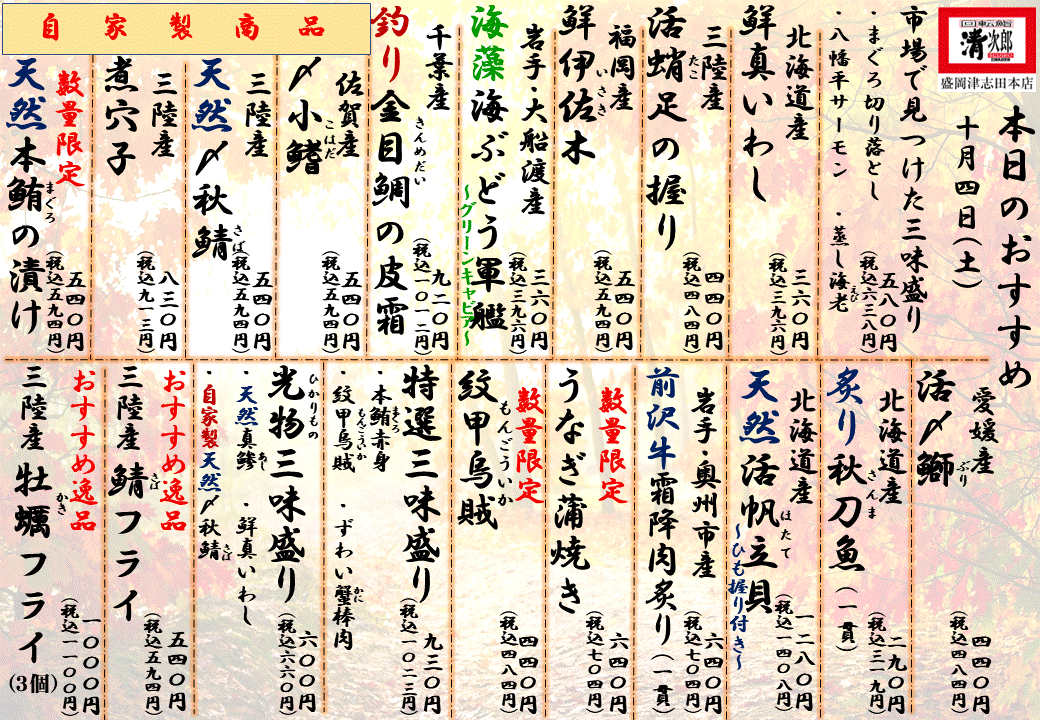 回転鮨
清次郎
盛岡津志田本店
本日のおすすめ
十月四日(土)
市場で見つけた三味盛り
五八〇円
(税込六三八円)
・まぐろ切り落とし
・八幡平サーモン ・蒸し海老
えび
北海道産
鮮真いわし
三六〇円
(税込三九六円)
三陸産
活蛸足の握り
たこ
四四〇円
(税込四八四円)
福岡産
鮮伊佐木
いさき
五四〇円
(税込五九四円)
岩手・大船渡産
海藻海ぶどう軍艦
~グリーンキャビア~
三六〇円
(税込三九六円)
千葉産
釣り金目鯛の皮霜
きんめだい
九二〇円
(税込一〇一二円)
自家製商品
佐賀産
〆小鰭
こはだ
五四〇円
(税込五九四円)
三陸産
天然〆秋鯖
さば
五四〇円
(税込五九四円)
三陸産
煮穴子
八三〇円
(税込九一三円)
数量限定
天然本鮪の漬け
まぐろ
五四〇円
(税込五九四円)
愛媛産
活〆鰤
ぶり
四四〇円
(税込四八四円)
北海道産
炙り秋刀魚(一貫)
さんま
二九〇円
(税込三一九円)
北海道産
天然活帆立貝
ほたて
~ひも握り付き~
一二八〇円
(税込一四〇八円)
岩手・奥州市産
前沢牛霜降肉炙り(一貫)
六四〇円
(税込七〇四円)
数量限定
うなぎ蒲焼き
六四〇円
(税込七〇四円)
数量限定
紋甲烏賊
もんごういか
四四〇円
(税込四八四円)
特選三味盛り
九三〇円
(税込一〇二三円)
・本鮪赤身 ・ずわい蟹棒肉
まぐろ
かに
・紋甲烏賊
もんごういか
光物三味盛り
ひかりもの
六〇〇円
(税込六六〇円)
・天然真鯵 ・鮮真いわし
あじ
・自家製天然〆秋鯖
さば
おすすめ逸品
三陸産 鯖フライ
さば
五四〇円
(税込五九四円)
おすすめ逸品
三陸産 牡蠣フライ(3個)
かき
一〇〇〇円
(税込一一〇〇円)